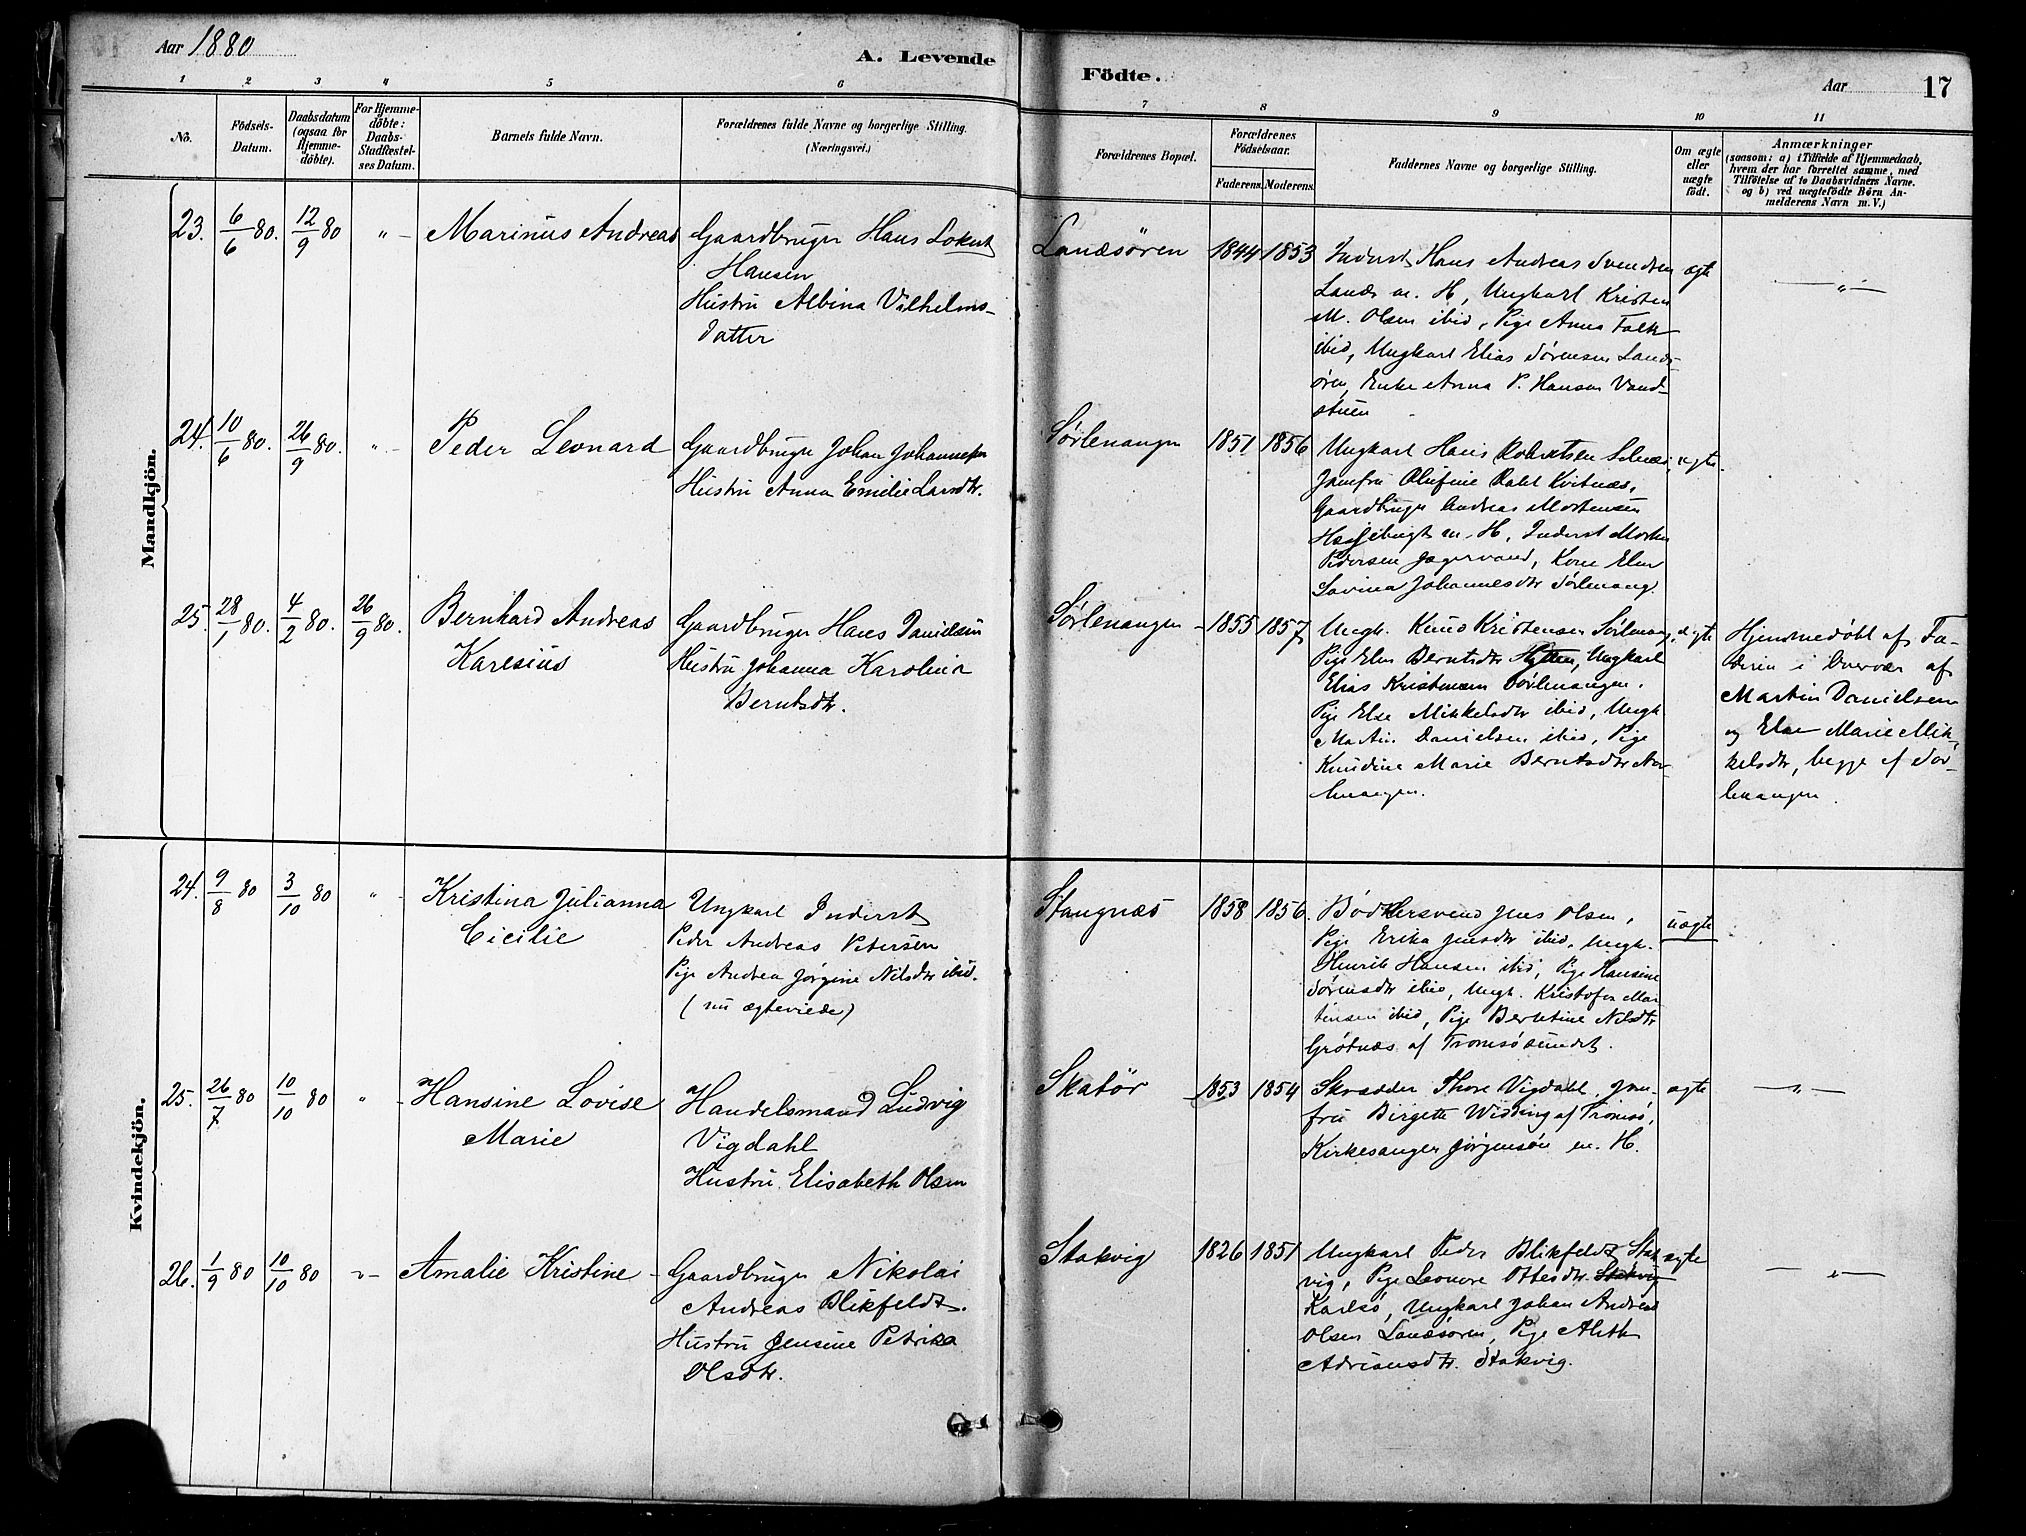 Aar 1880
A. Levende
Födte.
Aar
17
1 2 3 4 5 6 7 8 9 10 11
No.
Födsels-
Datum.
Daabsdatum
(ogsaa for
Hjemme-
döbte).
For Hjemme-
döbte:
Daabs-
Stadfæstel-
ses Datum.
Barnets fulde Navn.
Forældrenes fulde Navne og borgerlige Stilling.
(Næringsvei.)
Forældrenes Bopæl.
Forældrenes
Födselsaar.
Faderens. Moderens.
Faddernes Navne og borgerlige Stilling.
Om ægte
eller
uægte
födt.
Anmærkninger
(saasom: a) i Tilfælde af Hjemmedaab,
hvem der har forrettet samme, med
Tilföielse af to Daabsvidners Navne.
og b) ved uægtefödte Börn An-
melderens Navn m. V.)
Mandkjön.
23. 6/6 80. 12/9 80 " - Marinus Andreas
Gaardbruger Hans Lokert
Hansen
Hustru Albina Vilhelms-
datter
Lanæsören 1844 1853
Inderst Hans Andreas Svendsen
Lanæs m. H, Ungkarl Kristen
M. Olsen ibid, Pige Anna Falk
ibid, Ungkarl Elias Sörensen Lanæs-
ören, Enke Anna P. Hansen Vand-
stuen
ægte
- " -
24. 10/6 80. 26/9 80. " - Peder Leonard
Gaardbruger Johan Johannesen
Hustru Anna Emilie Larsdtr.
Sørlenangen 1851 1856
Ungkarl Hans Robertsen
Jomfru Olufine Dahl Kvitnæs,
Gaardbruger Andreas Mortensen
m. H, Inderst Morten
Pedersen Jægervand, Kone Elen
Lovina Johannesdtr Sørlenang.
ægte
25. 28/1 80. 4/2 80. 26/9 80. Bernhard Andreas
Karesius
Gaardbruger Hans Danielsen
Hustru Johanna Karolina
Berntsdtr.
Sørlenangen - 1855 1857
Ungk. Knud Kristensen Sørlenang,
Pige Elen Berntsdtr , Ungkarl
Elias Kristensen Sørlenangen.
Pige Else Mikkelsdtr ibid, Ungk
Martin Danielsen ibid, Pige
Knudine Marie Berntsdtr Sør-
lenangen.
ægte
Hjemmedøbt af Fa-
deren i Overvær af
Martin Danielsen
og Else Marie Mik-
kelsdtr, begge af Sør-
lenangen.
Kvindekjön.
24. 9/8 80 3/10 80 " - Kristina Julianna
Cicilie
Ungkarl Inderst
Peder Andreas Petersen
Pige Andrea Jørgine Nilsdtr ibid.
(nu ægteviede)
Stangnæs 1858 1856.
Bødkersvend Jens Olsen,
Pige Erika Jensdtr ibid, Ungk.
Henrik Hansen ibid, Pige Hansine
Sørensdtr ibid, Ungk. Kristofer Mar-
tinsen ibid, Pige Berntine Nilsdtr
Grøtnæs af Tromsøsundet.
uægte
25. 26/7 80 10/10 80 " - Hansine Lovise
Marie
Handelsmand Ludvig
Vigdahl
Hustru Elisabeth Olsen
Skatør 1853 1854
Skrædder Thore Vigdahl, Jom-
fru Birgette Widding af Tromsø,
Kirkesanger Jørgensøn m. H.
ægte
- " -
26. 1/9 80 10/10 80 " - Amalie Kristine -
Gaardbruger Nikolai
Andreas Blikfeldt.
Hustru Jensine Petrika
Olsdtr.
Stakvig 1826 1851
Ungkarl Peder Blikfeldt Stak-
vig, Pige Leonore Ottesdtr. Stakvig
Karlsø, Ungkarl Johan Andreas
Olsen Lanæsøren, Pige Aleth
Adriansdtr. Stakvig.
ægte
- " -